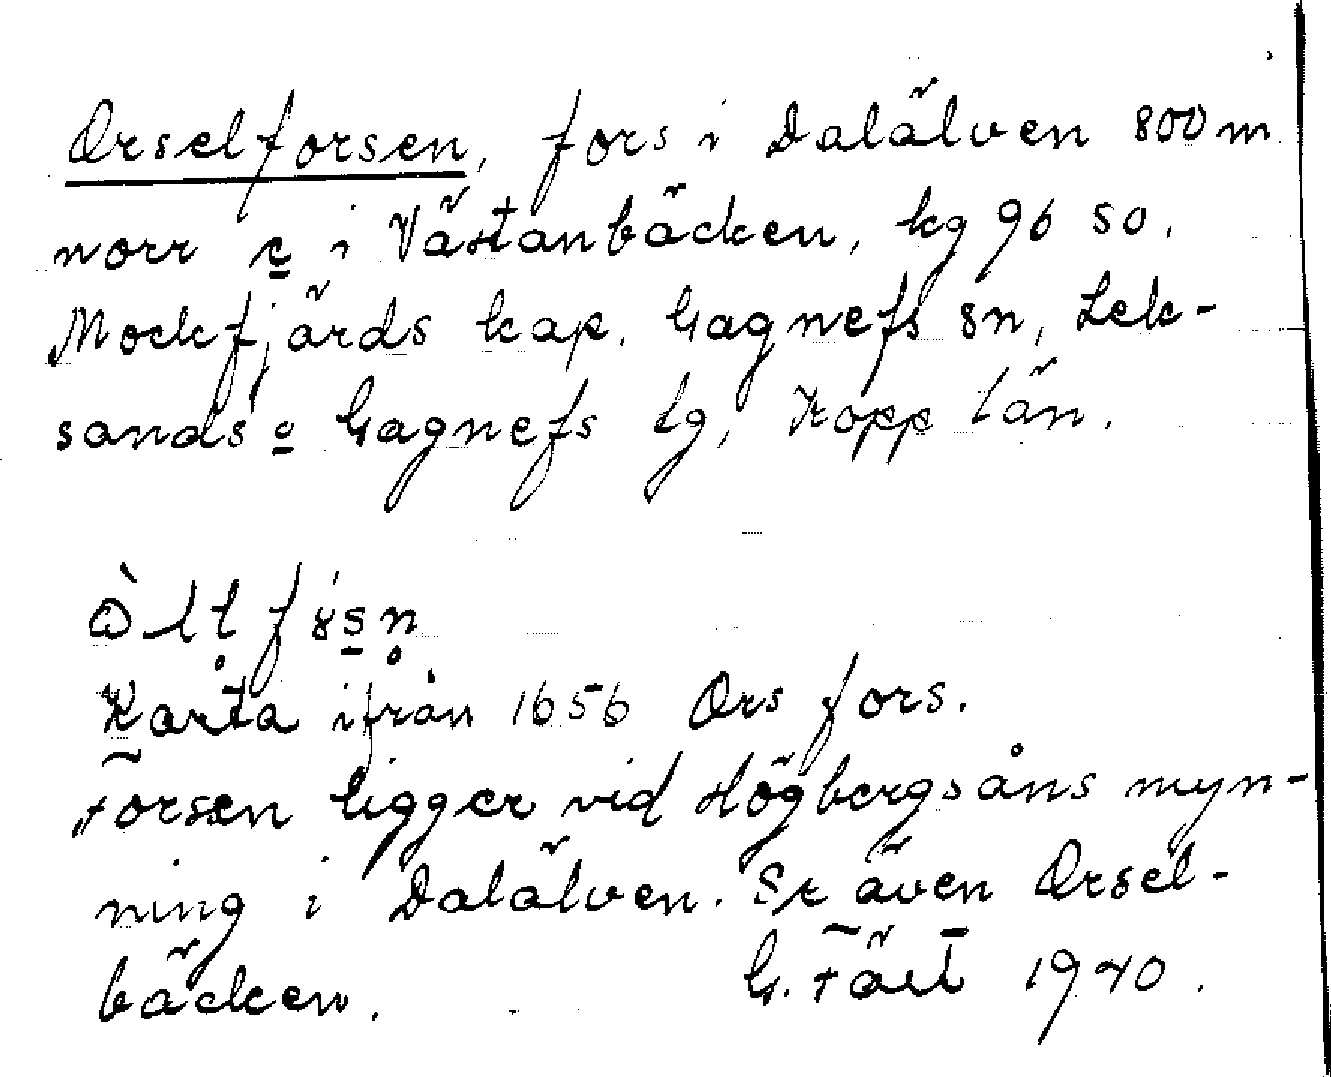 Orselforsen, fors i Dalälven 800 m
norr e i Västanbäcken, kg 96 SO.
Mockfjärds kap. Gagnefs sn, Lek-
sands o Gagnefs tg, Kopp län.
Karta ifrån 1656 Ors fors.
Forsen ligger vid Högbergsåns myn-
ning i Dalälven. Se även Orsel-
bäcken. G. Fält 1940.